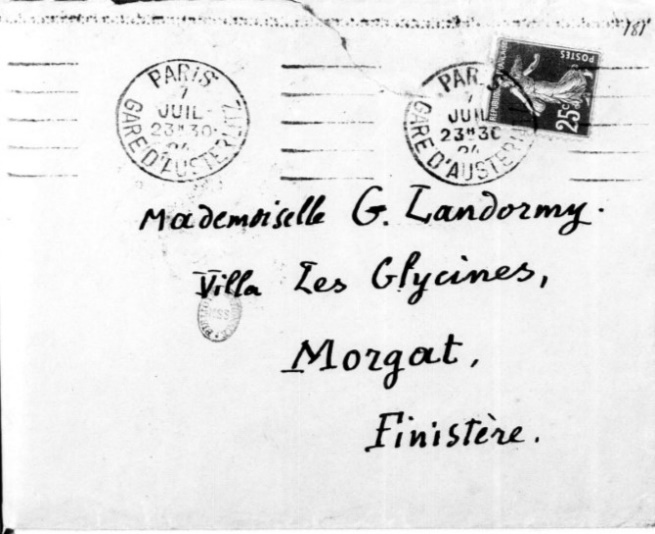 181
PARIS
7
JUIL
23H30
24
GARE D'AUSTERLITZ
PARIS
7
JUIL
23H30
24
GARE D'AUSTERLITZ
POSTES
25c
Mademoiselle G. Landormy.
Villa Les Glycines,
MSS
Morgat,
Finistère.